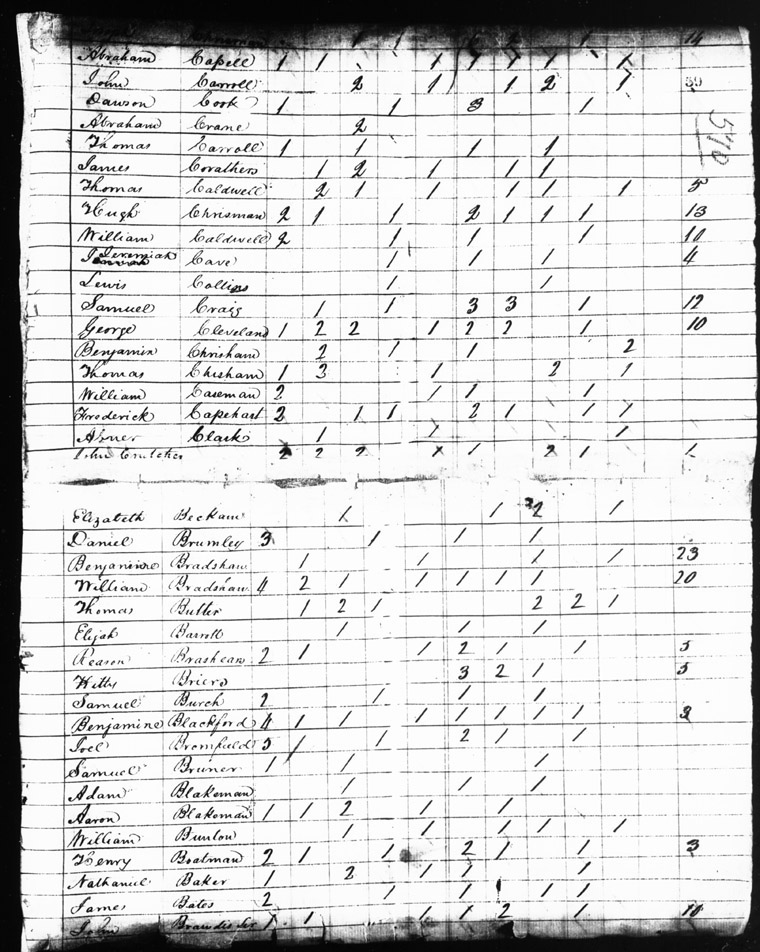 14
Abraham Capell 1 1 1 1 1 1 1 1
John Carroll 2 1 1 2 1 39
Dawson Cook 1 1 3 1
Abraham Crane 2
570
Thomas Carroll 1 1 1 1
James Corathers 1 2 1 1 1
Thomas Caldwell 2 1 1 1 1 1 5
Hugh Chrisman 2 1 1 2 1 1 1 13
William Caldwell 2 1 1 1 10
Jeremiah Cave 1 1 1 4
Lewis Collins 1 1
Samuel Craig 1 1 3 3 1 12
George Cleveland 1 2 2 1 2 2 1 10
Benjamin Chrisham 2 1 1 2
Thomas Chisham 1 3 1 2 1
William Caseman 2 1 1 1
Frederick Capehart 2 1 1 2 1 1 1
Abner Clark 1 1 1
John Crutcher 2 2 2 1 1 2 1 1
Elizabeth Beckam 1 1 2 1
Daniel Brumley 3 1 1 1
Benjamine Bradshaw 1 1 1 1 23
William Bradshaw 4 2 1 1 1 1 1 20
Thomas Butler 1 2 1 2 2 1
Elijah Barrott 1 1 1
Reason Brashears 2 1 1 2 1 1 5
Kitty Briers 3 2 1 5
Samuel Burch 2 1 1 1
Benjamine Blackford 4 1 1 1 1 1 1 1 3
Joel Bromfield 5 1 1 2 1 1
Samuel Bruner 1 1 1
Adam Blakeman 1 1 1
Aaron Blakeman 1 1 2 1 1
William Bunton 1 1 1 1 1
Henry Boatman 2 1 1 2 1 1 3
Nathaniel Baker 1 2 1 1 1
James Bates 2 1 1 1 1
John 1 1 1 1 2 1 10